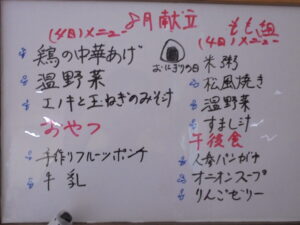 8月献立
(4日)メニュー
鶏の中華あげ
温野菜
エノキと玉ねぎのみそ汁
おにぎりの日
おやつ
手作りフルーツポンチ
牛乳
もも組
(4日)メニュー
米粥
松風焼き
温野菜
すまし汁
午後食
人参パンがゆ
オニオンスープ
りんごゼリー